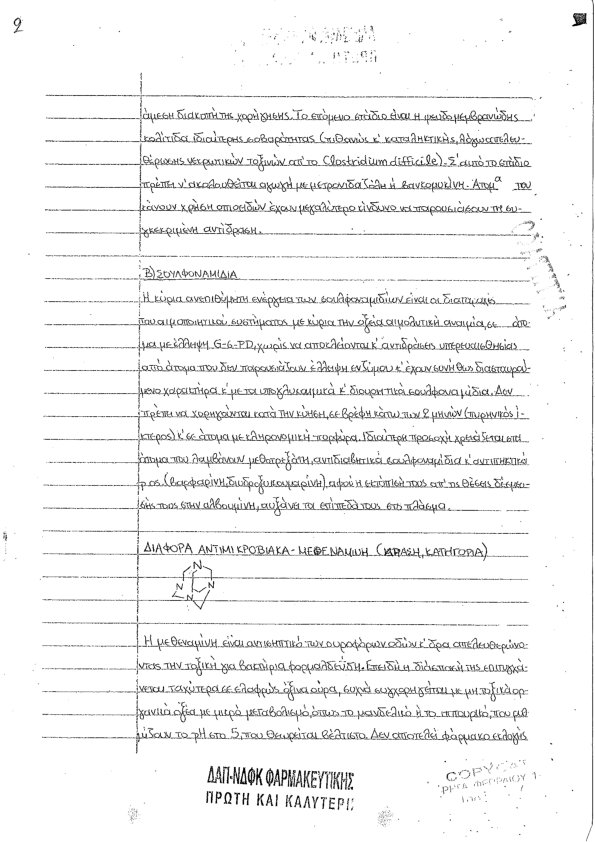 2
άμεση διακοπή της χορήγησης. Το επόμενο στάδιο είναι η ψευδομεμβρανώδης
κολίτιδα ιδιαίτερης σοβαρότητας (πιθανώς κ' καταληκτικής, λόγω απελευ-
θέρωσης νεκρωτικών τοξινών απ' το Clostridium difficile). Σ' αυτό το στάδιο
πρέπει ν' ακολουθείται αγωγή με μετρονιδαζόλη ή βανκομυκίνη. Άτομα που
κάνουν χρήση οπιοειδών έχουν μεγαλύτερο κίνδυνο να παρουσιάσουν τη συ-
γκεκριμένη αντίδραση.
Β) ΣΟΥΛΦΟΝΑΜΙΔΙΑ
Η κύρια ανεπιθύμητη ενέργεια των σουλφοναμιδίων είναι οι διαταραχές
του αιμοποιητικού συστήματος με κύρια την οξεία αιμολυτική αναιμία, σε άτο-
μα με έλλειψη G-6-PD, χωρίς να αποκλείονται κ' αντιδράσεις υπερευαισθησίας
από άτομα που δεν παρουσιάζουν έλλειψη ενζύμου κ' έχουν συνήθως διασταυρού-
μενο χαρακτήρα κ' με τα υπογλυκαιμικά κ' διουρητικά σουλφοναμίδια. Δεν
πρέπει να χορηγούνται κατά την κύηση, σε βρέφη κάτω των 2 μηνών (πυρηνικός ί-
κτερος) κ' σε άτομα με κληρονομική πορφύρα. Ιδιαίτερη προσοχή χρειάζεται στα
άτομα που λαμβάνουν μεθοτρεξάτη, αντιδιαβητικά σουλφοναμίδια κ' αντιπηκτικά
p.os. (βαρφαρίνη, διυδροξυκουμαρίνη) αφού η εκτόπισή τους απ' τις θέσεις δέσμευ-
σής τους στην αλβουμίνη, αυξάνει τα επίπεδά τους στο πλάσμα.
ΔΙΑΦΟΡΑ ΑΝΤΙΜΙΚΡΟΒΙΑΚΑ - ΜΕΘΕΝΑΜΙΝΗ (ΔΡΑΣΗ, ΚΑΤΗΓΟΡΙΑ)
N
N N
N
Η μεθεναμίνη είναι αντισηπτικό των ουροφόρων οδών κ' δρα απελευθερώνο-
ντας την τοξική για βακτήρια φορμαλδεΰδη. Επειδή η διάσπασή της επιτυγχά-
νεται ταχύτερα σε ελαφρώς όξινα ούρα, συχνά συγχορηγείται με μη τοξικά ορ-
γανικά οξέα με μικρό μεταβολισμό, όπως το μανδελικό ή το ιππουρικό, που ρυθ-
μίζουν το pH στο 5, που θεωρείται βέλτιστο. Δεν αποτελεί φάρμακο εκλογής
ΔΑΠ-ΝΔΦΚ ΦΑΡΜΑΚΕΥΤΙΚΗΣ
ΠΡΩΤΗ ΚΑΙ ΚΑΛΥΤΕΡΗ